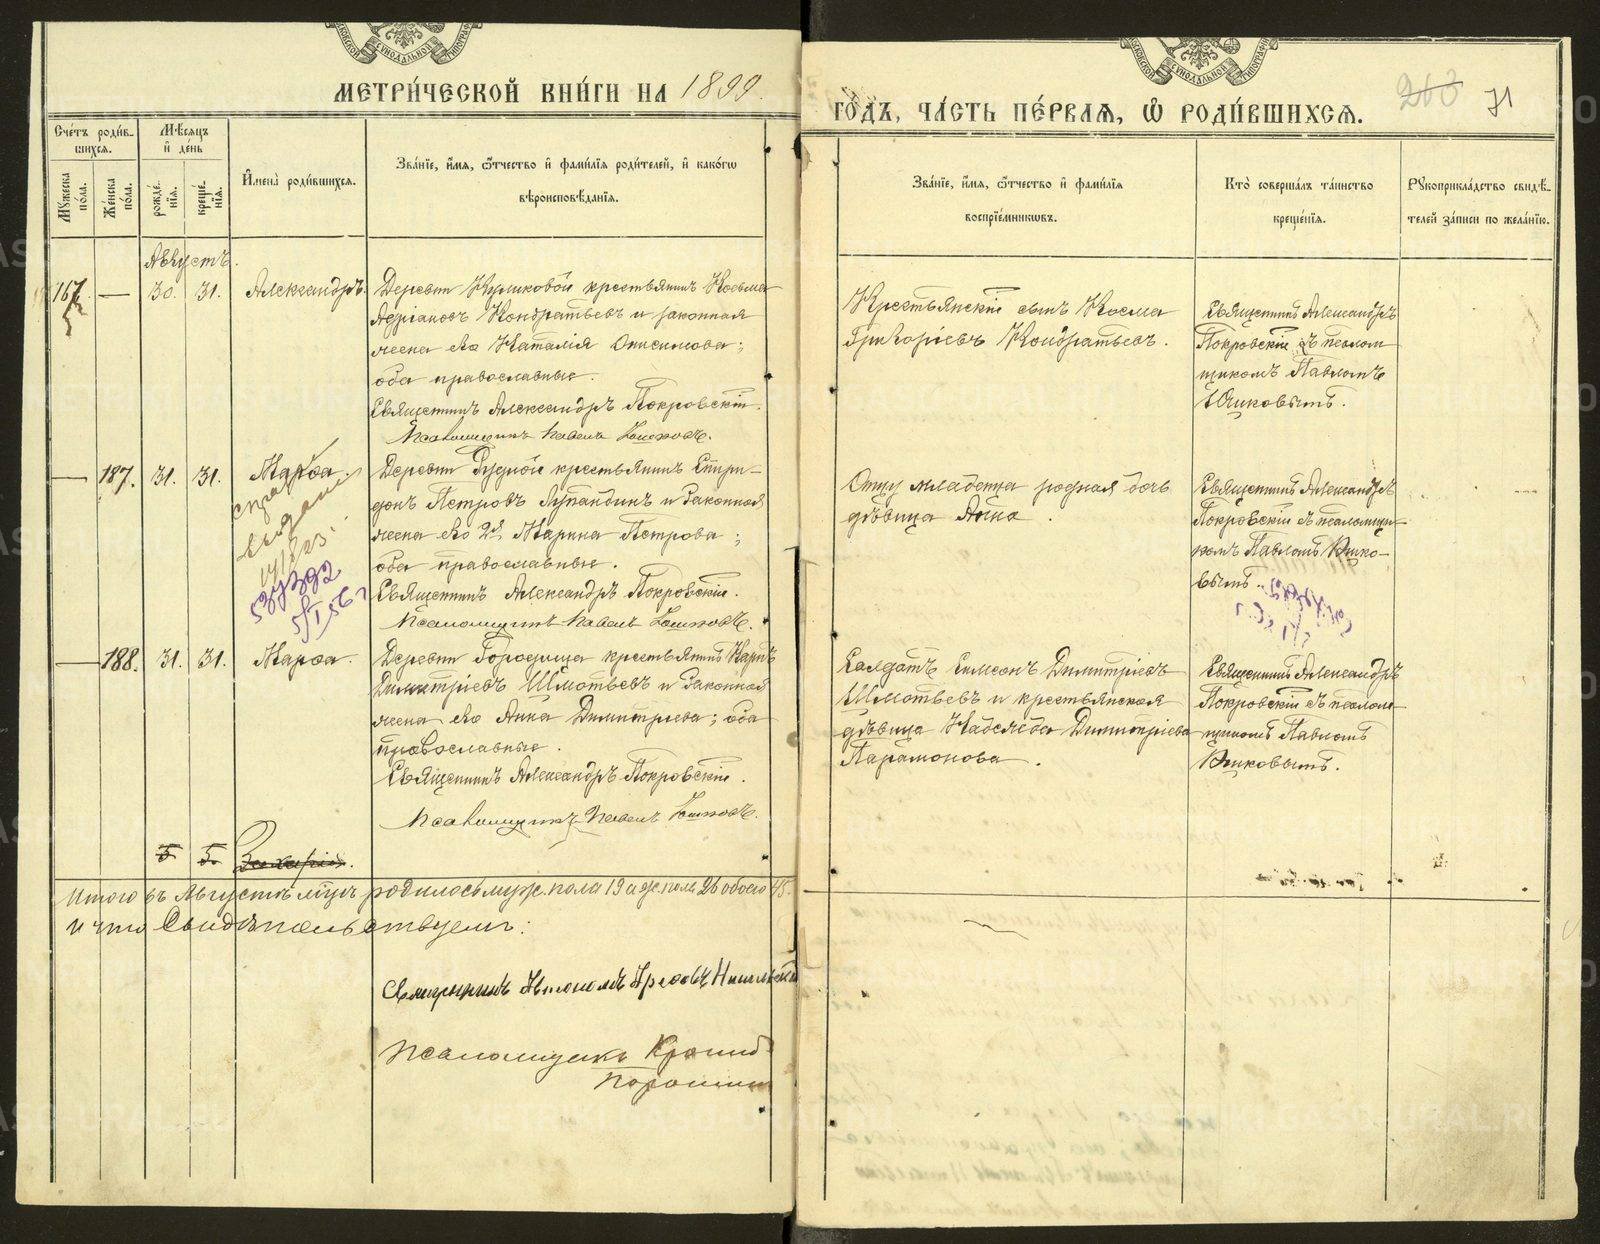 МЕТРИ́ЧЕСКОЙ КНИ́ГИ НА 1899.
ГОДЪ, ЧА́СТЬ ПЕ́РВАЯ, Ѡ РОДИ́ВШИХСЯ.
260 71
Сче́тъ роди́в-
шихся.
Мѣ́сяцъ
и де́нь
Му́жеска по́ла.
Же́нска по́ла.
рожде́нія.
креще́нія.
Имена̀ роди́вшихся.
Зва́ніе, и́мя, ѻ́тчество и фами́лія роди́телей, и како́гѡ
вѣроисповѣ́данія.
Зва́ніе, и́мя, ѻ́тчество и фами́лія
воспріе́мникѡвъ.
Кто̀ соверша́лъ та́инство
креще́нія.
Рукоприкла́дство свидѣ́-
телей за́писи по жела́нію.
Августъ.
167. — 30. 31. Александръ.
Деревни Куликовой крестьянинъ Косьма
Адріановъ Кондратьевъ и законная
жена его Наталія Онисимова;
оба православные.
Священникъ Александръ Покровскій.
Псаломщикъ Павелъ Юшковъ.
Крестьянскій сынъ Косма
Григоріевъ Кондратьевъ.
Священникъ Александръ
Покровскій съ псалом
щикомъ Павломъ
Юшковымъ.
— 187. 31. 31. Марѳа.
Деревни Рудной крестьянинъ Спири-
донъ Петровъ Лупандинъ и законная
жена его 2я Марина Петрова;
оба православные.
Священникъ Александръ Покровскій.
Псаломщикъ Павелъ Юшковъ.
Отцу младенца родная дочь
дѣвица Анна.
Священникъ Александръ
Покровскій съ псаломщи-
комъ Павломъ Юшко-
вымъ.
— 188. 31. 31. Марѳа.
Деревни Городища крестьянинъ Карпъ
Димитріевъ Шмотьевъ и законная
жена его Анна Димитріева; оба
православные.
Священникъ Александръ Покровскій.
Псаломщикъ Павелъ Юшковъ.
Салдатъ Симеонъ Димитріевъ
Шмотьевъ и крестьянская
дѣвица Надежда Димитріева
Парамонова.
Священникъ Александръ
Покровскій съ псалом-
щикомъ Павломъ
Юшковымъ.
5 5. Захарій.
Итого въ Августѣ мѣцѣ родилось муж. пола 19 и жен. пола 26 обоего 45.
И что свидѣтельствуемъ:
Псаломщикъ
METRIKI.GASO-URAL.RU